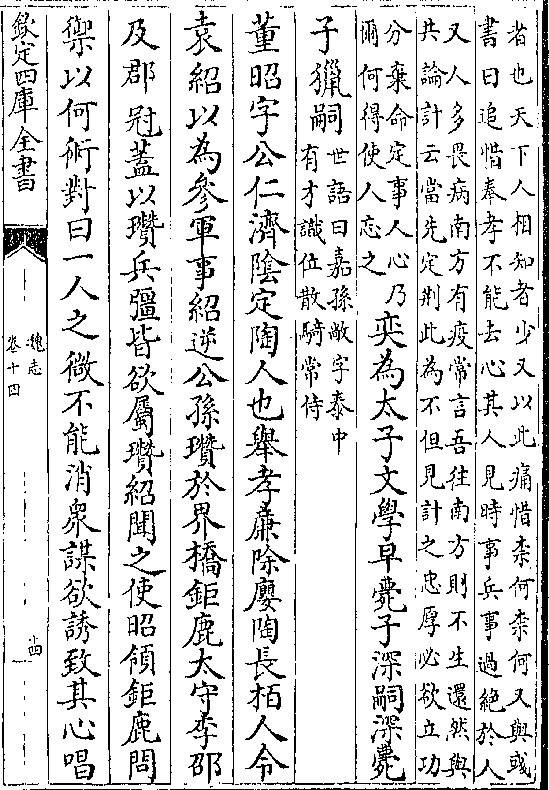 者也天下人相知者少又以此痛惜柰何柰何又與彧
書曰追惜奉孝不能去心其人見時事兵事過絶於人
又人多畏病南方有疫常言吾往南方則不生還然與
共論計云當先定荆此為不但見計之忠厚必欲立功
分棄命定事人心乃
爾何得使人忘之
奕為太子文學早薨子深嗣深薨
子獵嗣
世語曰嘉孫敞字泰中
有才識位散騎常侍
董昭字公仁濟隂定陶人也舉孝廉除廮陶長栢人令
袁紹以為參軍事紹逆公孫瓚於界橋鉅鹿太守李邵
及郡冠蓋以瓚兵彊皆欲屬瓚紹聞之使昭領鉅鹿問
禦以何術對曰一人之微不能消衆謀欲誘致其心唱
欽定四庫全書
魏志
卷十四
十四